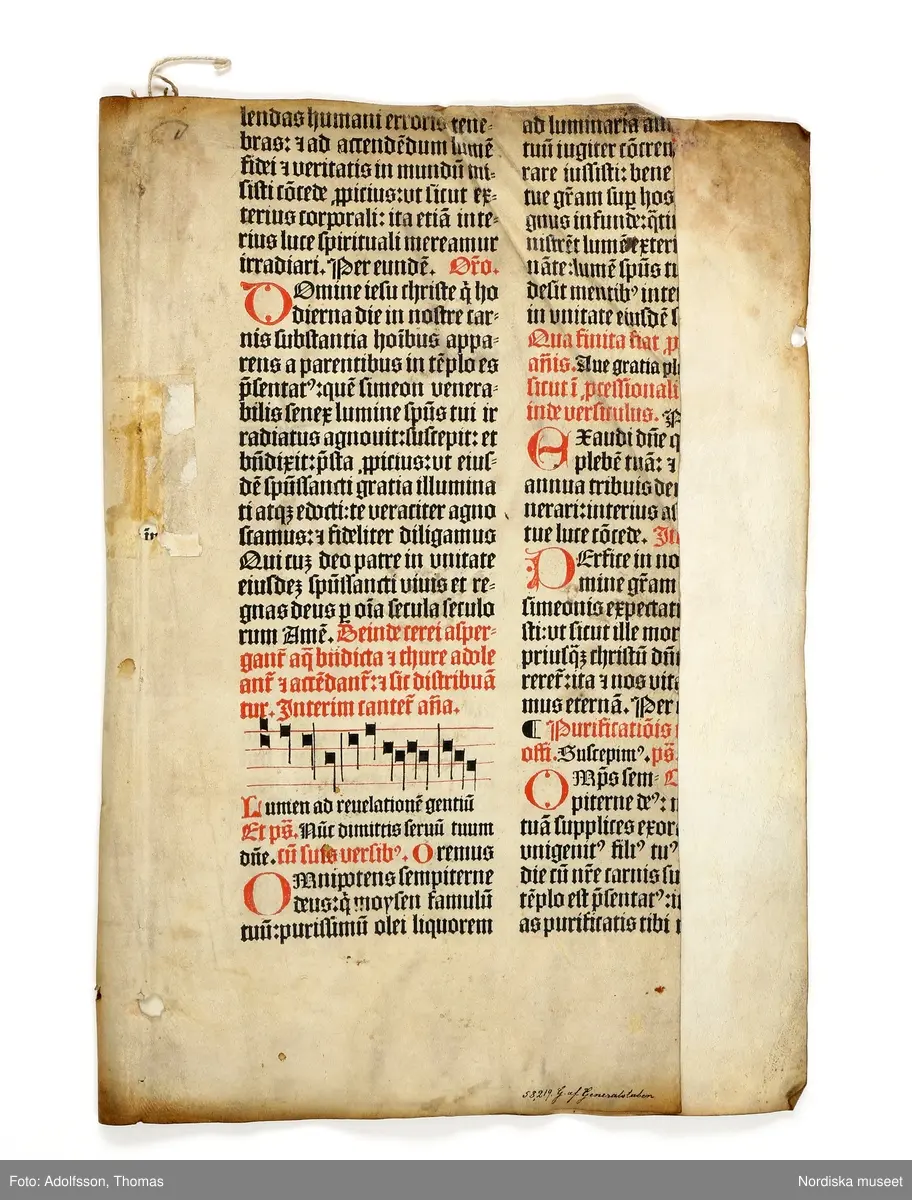 lendas humani erroris tene-
bras: ⁊ ad accendēdum lumē
fidei ⁊ veritatis in mundū mi-
sisti cōcede ꝓpicius: vt sicut ex-
terius corporali: ita etiā inte-
rius luce spirituali mereamur
irradiari. Per eundē. Or̄o.
DOmine iesu christe q̄ ho
dierna die in nostre car-
nis substantia hoībus appa-
rens a parentibus in tēplo es
p̄sentatꝰ: quē simeon venera-
bilis senex lumine spūs tui ir
radiatus agnouit: suscepit: et
bn̄dixit: p̄sta ꝓpicius: vt eius-
dē spūssancti gratia illumina
ti atqꝫ edocti: te veraciter agno
scamus: ⁊ fideliter diligamus
Qui cuꝫ deo patre in vnitate
eiusdeꝫ spūssancti viuis et re-
gnas deus ꝑ oīa secula seculo
rum Amē. Deinde cerei asper-
gant̄ aq̄ bn̄dicta ⁊ thure adole
ant̄ ⁊ accēdant̄: ⁊ sic distribuā
tur. Interim cantet̄ an̄a.
Lumen ad reuelationē gentiū
Et ps̄. Nūc dimittis seruū tuum
dn̄e. cū suis versibꝰ. Oremus
OMnipotens sempiterne
deus: q̄ moysen famulū
tuū: purissimū olei liquorem
ad luminaria an
tuū iugiter cōcren
rare iussisti: bene
tue gr̄am suꝑ hos
gnus infunde: q̄ti
nistrēt lumē exteri
nāte: lumē spūs tu
desit mentibꝰ inte
in vnitate eiusdē s
Qua finita fiat ꝓ
an̄is. Aue gratia pl
sicut ī ꝓcessionali
inde versiculus. P
EXaudi dn̄e q
plebē tuā: ⁊
annua tribuis de
nerari: interius as
tue luce cōcede. It
PErfice in no
mine gr̄am
simeonis expectati
sti: vt sicut ille mor
priusq̄ꝫ christū dn̄
reret̄: ita ⁊ nos vita
mus eternā. Per
¶ Purificatiōis
offi. Suscepimꝰ. ps̄.
OMps̄ sem-
piterne deꝰ:
tuā supplices exor
vnigenitꝰ filiꝰ tuꝰ
die cū nr̄e carnis su
tēplo est p̄sentatꝰ: it
as purificatis tibi
īn
58,219. G af Generalstaben
Foto: Adolfsson, Thomas
Nordiska museet